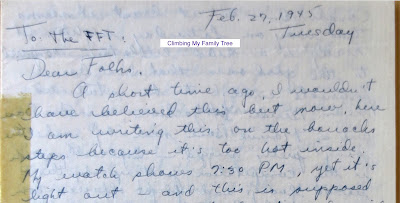 Feb. 27, 1945
Tuesday
To: the FFT:
Climbing My Family Tree
Dear Folks,
A short time ago, I wouldn't
have believed this but now, here
I am writing this on the barracks
steps because it's too hot inside.
My watch shows 7:30 PM, yet it's
light out - and this is supposed